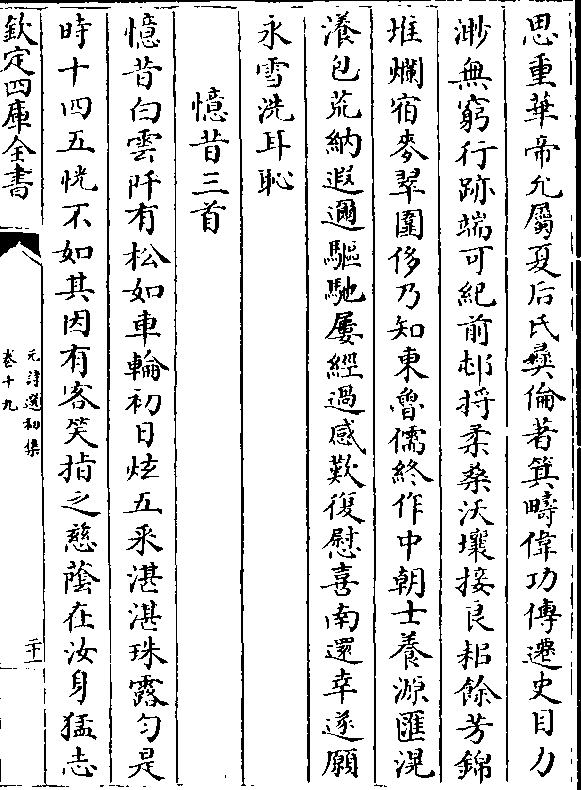 思重華帝允屬夏后氏彞倫著箕疇偉功傳遷史目力
渺無窮行跡端可紀前邨捋柔桑沃壤接良耜餘芳錦
堆爛宿麥翠圍侈乃知東魯儒終作中朝士養源匯滉
瀁包荒納遐邇驅馳屢經過感歎復慰喜南還幸遂願
永雪洗耳恥
憶昔三首
憶昔白雲阡有松如車輪初日炫五采湛湛珠露勻是
時十四五恍不如其因有客笑指之慈蔭在汝身猛志
欽定四庫全書
元詩選初集
卷十九
二十一